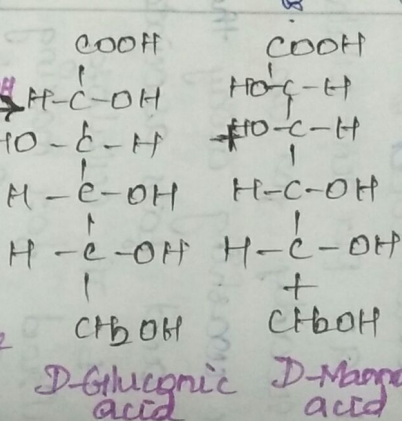 COOH
H-C-OH
HO-C-H
H-C-OH
H-C-OH
CH2OH
D-Gluconic
acid
COOH
HO-C-H
HO-C-H
H-C-OH
H-C-OH
CH2OH
D-Manno
acid